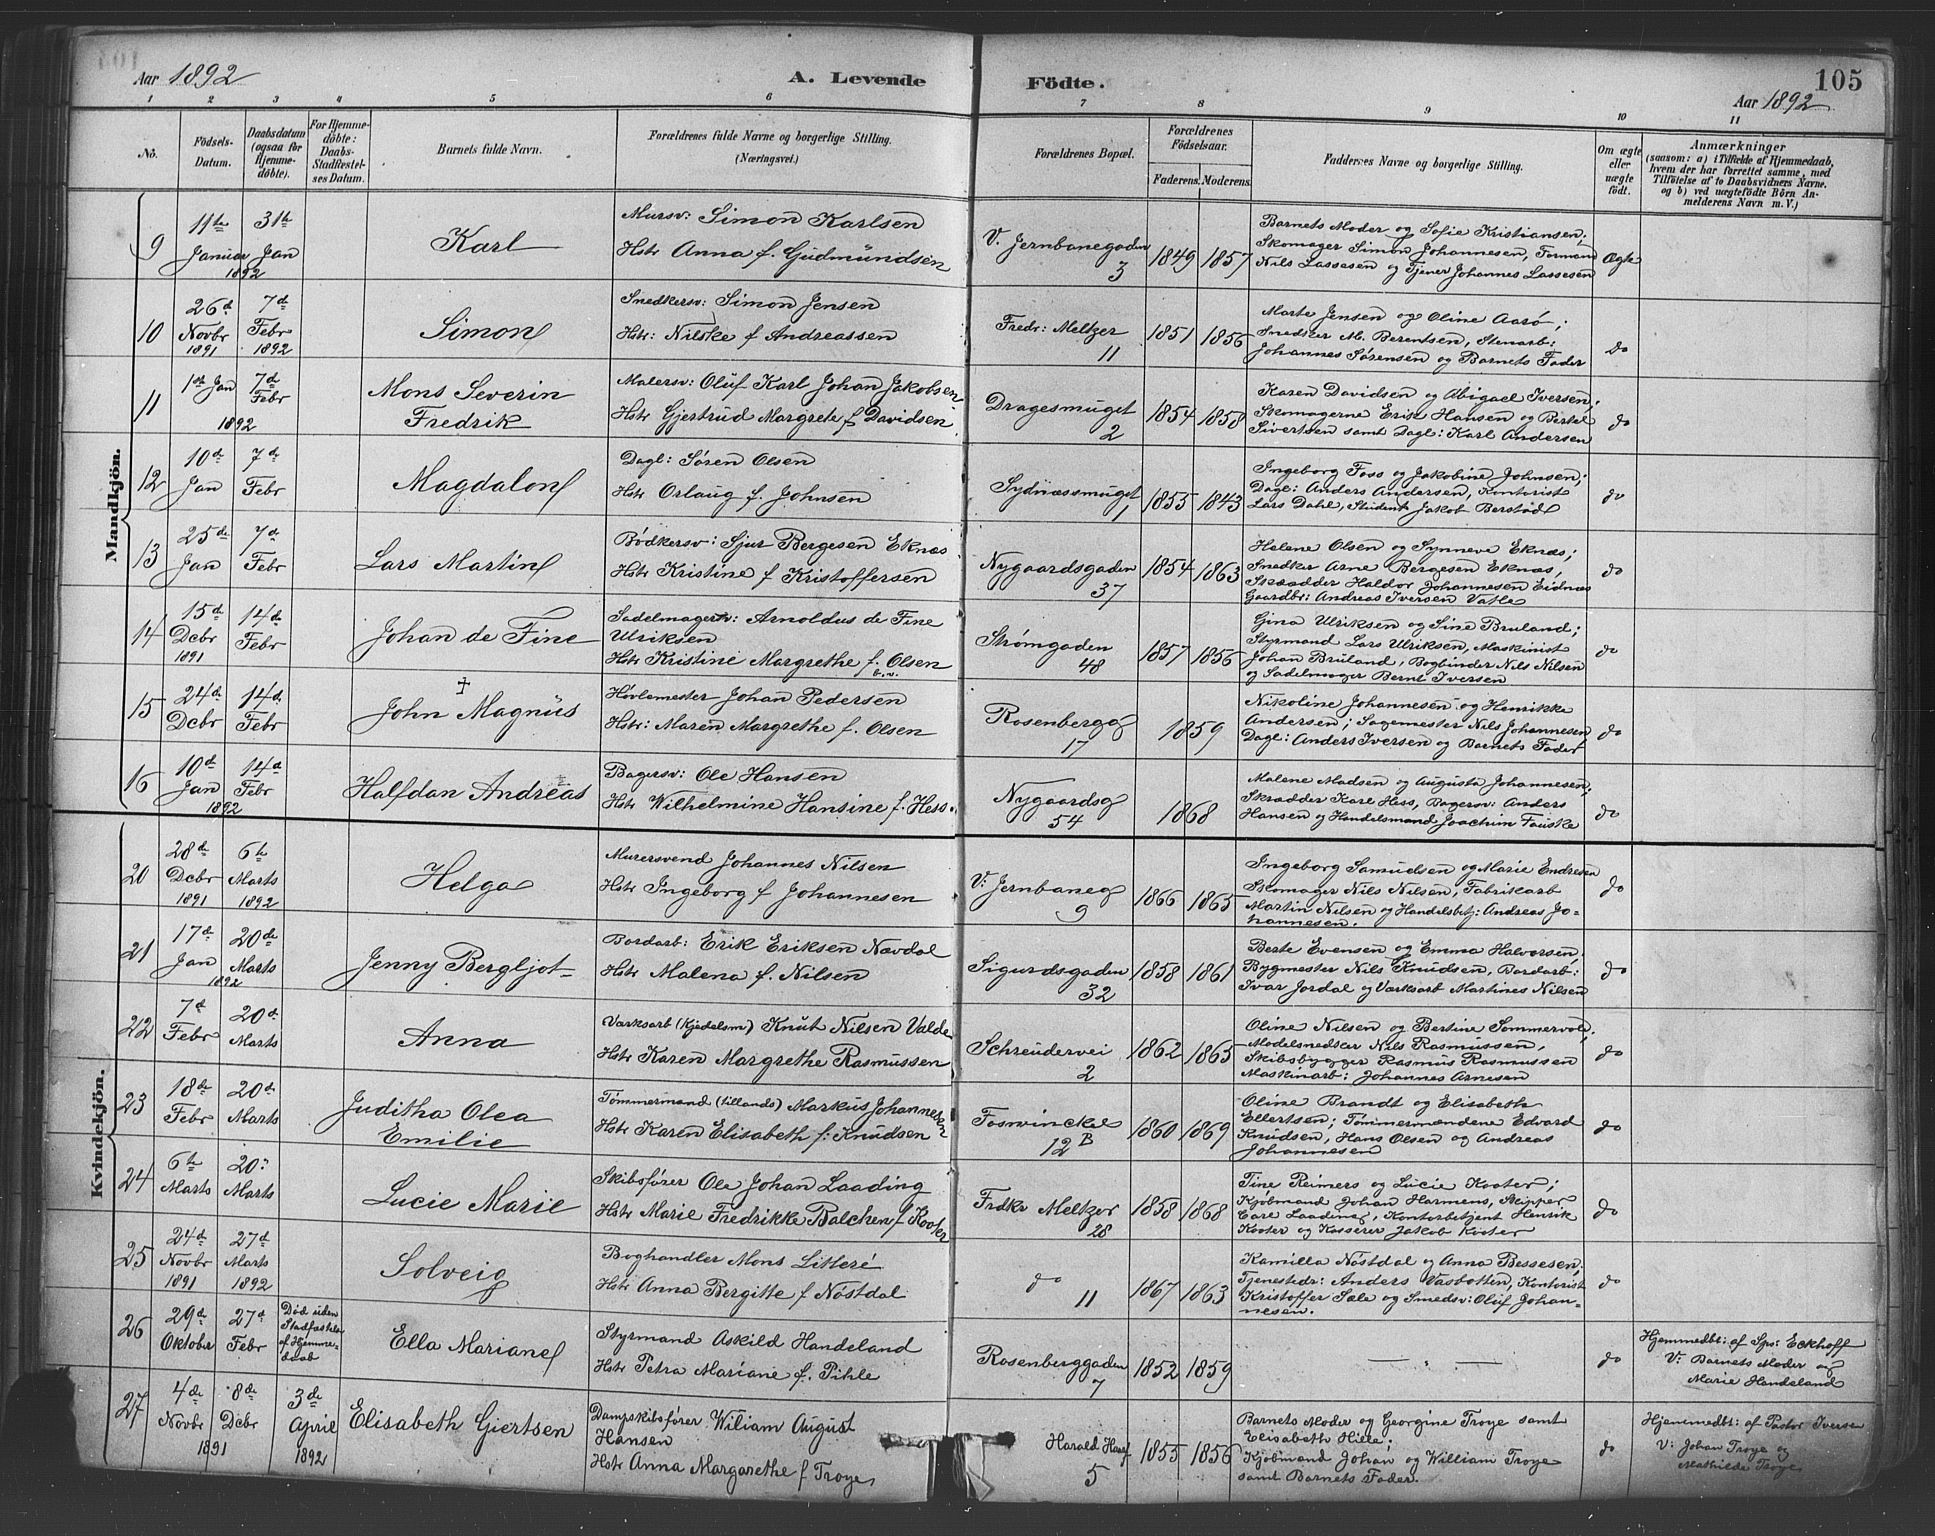 Aar 1892
A. Levende
Födte.
105
Aar 1892
1 2 3 4 5 6 7 8 9 10 11
No.
Födsels-
Datum.
Daabsdatum
(ogsaa for
Hjemme-
døbte).
For Hjemme-
døbte:
Daabs-
Stadfæstel-
ses Datum.
Barnets fulde Navn.
Forældrenes fulde Navne og borgerlige Stilling.
(Næringsvei.)
Forældrenes Bopæl.
Forældrenes
Födselsaar.
Faderens. Moderens.
Faddernes Navne og borgerlige Stilling.
Om ægte
eller
uægte
födt.
Anmærkninger
(saasom: a) i Tilfælde af Hjemmedaab,
hvem der har forrettet samme, med
Tilföielse af to Daabsvidners Navne.
og b) ved uægtefödte Börn An-
melderens Navn m. V.)
Mandkjön.
9
11te
Januar
1892
31te
Jan
Karl
Mursv: Simon Karlsen
Hstr Anna f. Gudmundsen
V. Jernbanegaden
3
1849 1857
Barnets Moder og Sofie Kristiansen;
Skomager Simon Johannesen, Formand
Nils Lassesen og Tjener Johannes Lassesen
Ægte
10
26d
Novbr
1891
7d
Febr
1892
Simon
Snedkersv: Simon Jensen
Hstr: Nilske f Andreassen
Fredr: Meltzer
11
1851 1856
Marte Jensen og Oline Aarø;
Snedker M. Berentsen, Stenarb:
Johannes Sørensen og Barnets Fader
Do
11
1ste Jan
1892
7d
Febr
Mons Severin
Fredrik
Malersv: Oluf Karl Johan Jakobsen
Hstr Gjertrud Margrete f Davidsen
Dragesmuget
2
1854 1858
Karen Davidsen og Abigael Iversen;
Skomagerne Erik Hansen og Bertel
Sivertsen samt Dagl: Karl Andersen
do
12
10d
Jan
7d
Febr
Magdalon
Dagl: Søren Olsen
Hstr Orlaug f. Johnsen
Sydnæssmuget
1
1855 1843
Ingeborg Foss og Jakobine Johnsen;
Dagl: Anders Andersen, Kontorist
Lars Dahl, Student Jakob Berstad
do
13
25de
Jan
7d
Febr
Lars Martin
Bødkersv: Sjur Bergesen Eknæs
Hstr Kristine f Kristoffersen
Nygaardsgaden
37
1854 1863
Helene Olsen og Synneve Eknæs;
Snedker Arne Bergesen Eknæs,
Skrædder Haldor Johannesen Eidnæs
Gaardbr: Andreas Iversen Vatle
do
14
15d
Dcbr
1891
14de
Febr
Johan de Fine
Sadelmagerh: Arnoldus de Fine
Ulriksen
Hstr Kristine Margrethe f. Olsen
Strømgaden
48
1857 1856
Gina Ulriksen og Sine Bruland;
Styrmand Lars Ulriksen, Maskinist
Johan Bruland, Bogbinder Nils Nilsen
og Sadelmager Bernt Iversen
do
15
24d
Dcbr
14d
Febr
†
John Magnus
Høvlemester Johan Pedersen
Hstr: Maren Margrethe f. Olsen
Rosenbergg
17
1859
Nikoline Johannesen og Henrikke
Andersen; Sagemester Nils Johannesen,
Dagl: Anders Iversen og Barnets Fader
do
16
10d
Jan
1892
14d
Febr
Halfdan Andreas
Bagersv: Ole Hansen
Hstr Wilhelmine Hansine f. Hess.
Nygaardsg
54
1868
Malene Madsen og Augusta Johannesen;
Skrædder Karl Hess, Bagersv: Anders
Hansen og Handelsmand Joachim Fauske
do
Kvindekjön.
20
28d
Dcbr
1891
6te
Marts
1892
Helga
Murersvend Johannes Nilsen
Hstr Ingeborg f Johannesen
V: Jernbaneg
9
1866 1865
Ingeborg Samudsen og Marie Endresen
Skomager Nils Nilsen, Fabrikarb
Martin Nilsen og Handelsbetj: Andreas Jo-
hannesen.
do
21
17d
Jan
1892
20de
Marts
Jenny Bergljot
Bordarb: Erik Eriksen Nævdal
Hstr Malena f. Nilsen
Sigurdsgaden
32
1858 1861
Berte Evensen og Emma Halvorsen;
Bygmester Nils Knudsen, Bordarb:
Ivar Jordal og Værksarb Martines Nilsen
do
22
7d
Febr
20d
Marts
Anna
Værksarb (Kjedelsm) Knut Nilsen Valde
Hstr Karen Margrethe Rasmussen
Schreudervei
2
1862 1865
Oline Nilsen og Bertine Sommervold;
Modelsnedker Nils Rasmussen,
Skibsbygger Rasmus Rasmussen
Maskinarb: Johannes Arnesen
do
23
18de
Febr
20d
Marts
Juditha Olea
Emilie
Tømmermand (tillands) Markus Johannesen
Hstr Karen Elisabeth f: Knudsen
Foswinckel
12 B
1860 1869
Oline Brandt og Elisabeth
Ellertsen; Tømmermændene Edvard
Knudsen, Hans Olsen og Andreas
Johannesen
do
24
6te
Marts
20d
Marts
Lucie Marie
Skibsfører Ole Johan Laading
Hstr Marie Fredrikke Balchen f Kooter
Frdkr Meltzer
28
1858 1868
Tine Reimers og Lucie Kooter;
Kjøbmand Johan Harmens, Skipper
Carl Laading, Kontorbetjent Henrik
Kooter og Kasserer Jakob Kooter
do
25
24d
Novbr
1891
27d
Marts
1892
Solveig
Boghandler Mons Litleré
Hstr Anna Bergitte f Nöstdal
do
11
1867 1863
Kamilla Nöstdal og Anna Bessesen;
Tjenestedr: Anders Vasbotten, Kontorist
Kristoffer Sæle og Smedsv: Oluf Johan-
nesen.
do
26
29d
Oktober
27d
Febr
Død uden
Stadfæstelse
af Hjemme-
daab
Ella Mariane
Styrmand Askild Handeland
Hstr Petra Mariane f. Pihle
Rosenberggaden
7
1852 1859
— " —
do
Hjemmedbt: af Spr Eckhoff
V: Barnets Moder og
Marie Handeland
27
4de
Novbr
1891
8de
Dcbr
3de
April
1892
Elisabeth Giertsen
Dampskibsfører Wiliam August
Hansen
Hstr Anna Margarethe f Troye
Harald Haarf
5
1855 1856
Barnets Moder og Georgine Troye samt
Elisabeth Hille;
Kjøbmand Johan og William Troye
samt Barnets Fader.
do
Hjemmedbt: af Pastor Iversen
V: Johan Troye og
Mathilde Troye